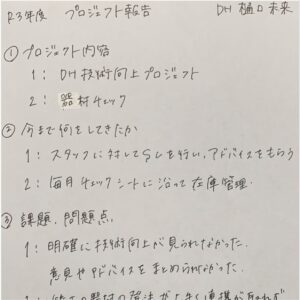 R3年度 プロジェクト報告 DH 樋口未来
① プロジェクト内容
1: DH技術向上プロジェクト
2: 器材チェック
② 今まで何をしてきたか
1: スタッフに対してSLを行い、アドバイスをもらう
2: 毎月チェックシートに沿って在庫管理.
③ 課題、問題点
1: 明確に技術向上が見られなかった.
意見やアドバイスをまとめられなかった.